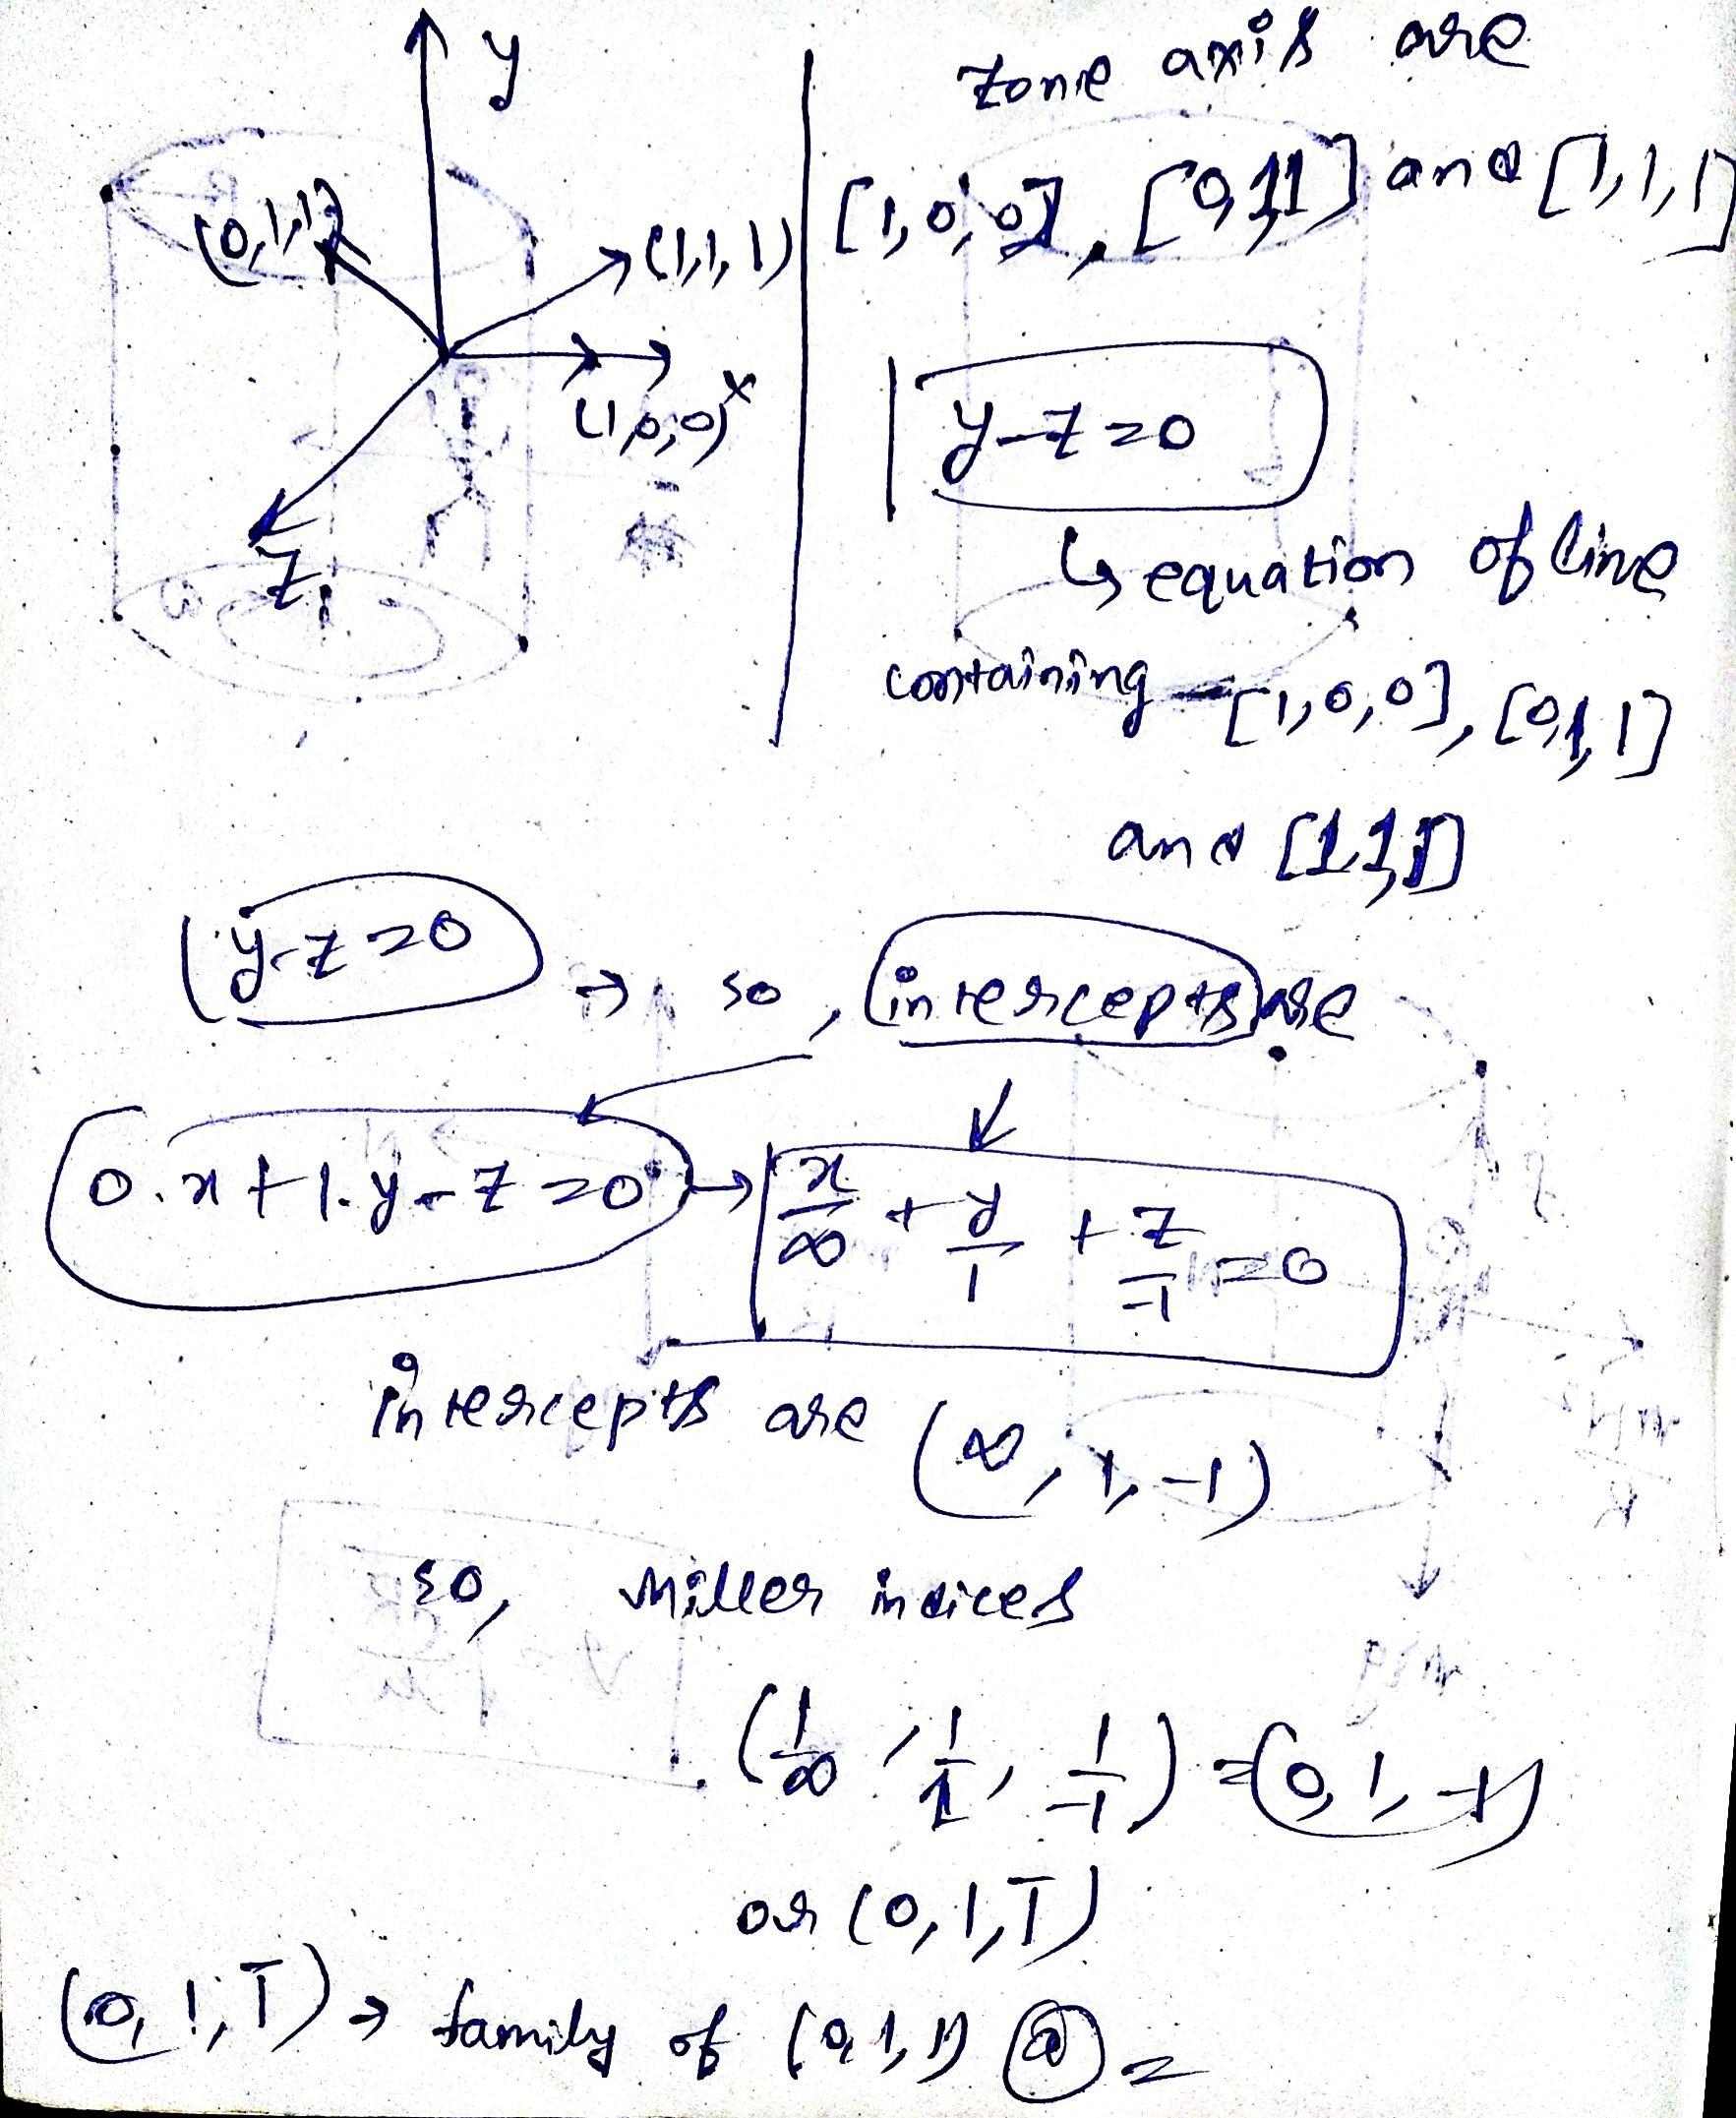 y
(0,1,1)
(1,1,1)
x
(1,0,0)
z
zone axis are
[1,0,0], [0,1,1] and [1,1,1]
y-z=0
↳ equation of line
containing - [1,0,0], [0,1,1]
and [1,1,1]
y-z=0 → so, intercepts are
0.x+1.y-z=0 → x/∞ + y/1 + z/-1 = 0
intercepts are (∞, 1, -1)
so, Miller indices
(1/∞, 1/1, 1/-1) = (0, 1, -1)
or (0, 1, 1̅)
(0, 1, 1̅) → family of (0,1,1) ⓐ =